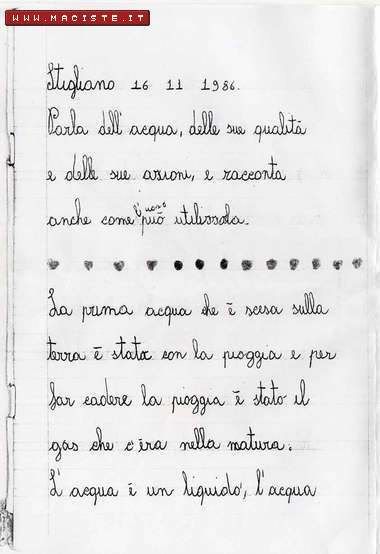 WWW.MACISTE.IT
Stigliano 16 11 1986.
Parla dell'acqua, delle sue qualità
e delle sue azioni, e racconta
anche come l'uomo può utilizzarla.
La prima acqua che è scesa sulla
terra è stata con la pioggia e per
far cadere la pioggia è stato il
gas che c'èra nella natura.
L'acqua è un liquido, l'acqua